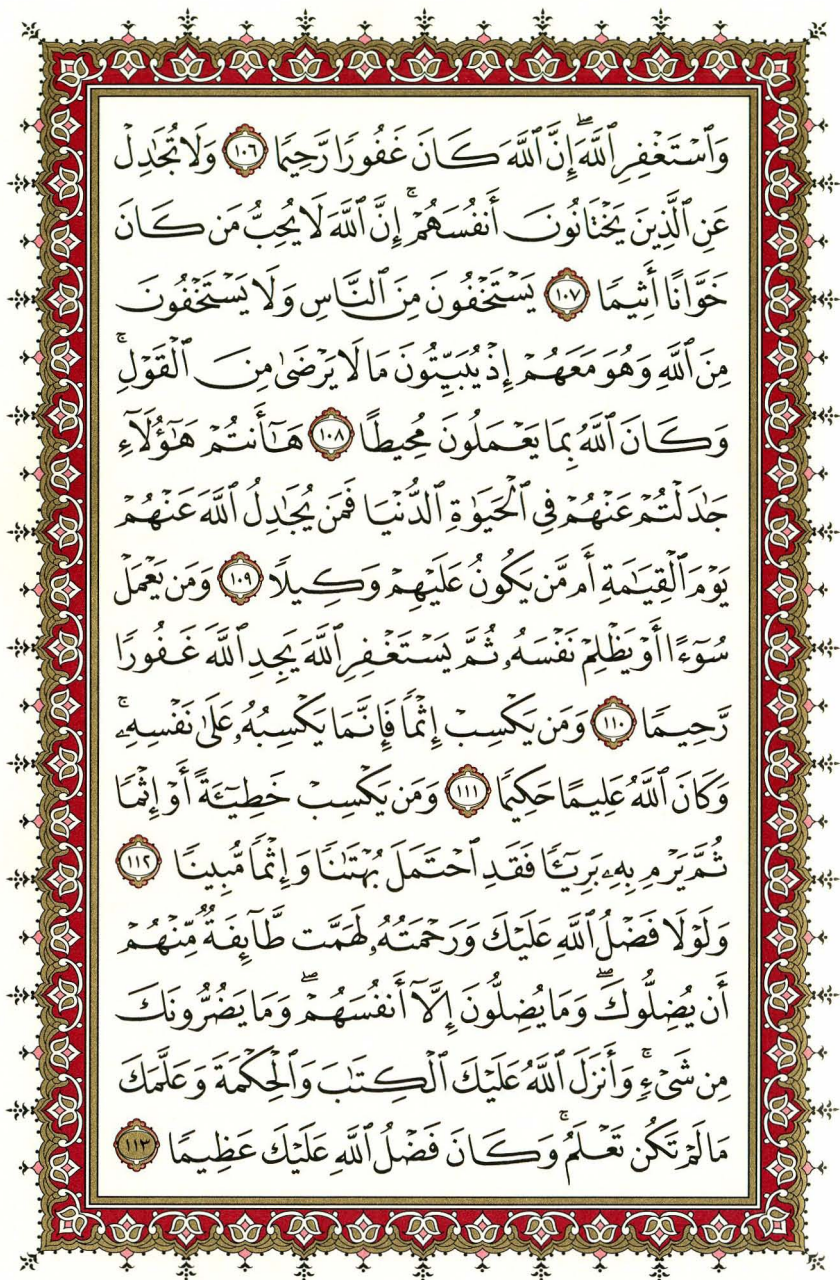 وَٱسْتَغْفِرِ ٱللَّهَ ۖ إِنَّ ٱللَّهَ كَانَ غَفُورًا رَّحِيمًا ١٠٦ وَلَا تُجَٰدِلْ
عَنِ ٱلَّذِينَ يَخْتَانُونَ أَنفُسَهُمْ ۚ إِنَّ ٱللَّهَ لَا يُحِبُّ مَن كَانَ
خَوَّانًا أَثِيمًا ١٠٧ يَسْتَخْفُونَ مِنَ ٱلنَّاسِ وَلَا يَسْتَخْفُونَ
مِنَ ٱللَّهِ وَهُوَ مَعَهُمْ إِذْ يُبَيِّتُونَ مَا لَا يَرْضَىٰ مِنَ ٱلْقَوْلِ ۚ
وَكَانَ ٱللَّهُ بِمَا يَعْمَلُونَ مُحِيطًا ١٠٨ هَٰٓأَنتُمْ هَٰٓؤُلَآءِ
جَٰدَلْتُمْ عَنْهُمْ فِى ٱلْحَيَوٰةِ ٱلدُّنْيَا فَمَن يُجَٰدِلُ ٱللَّهَ عَنْهُمْ
يَوْمَ ٱلْقِيَٰمَةِ أَم مَّن يَكُونُ عَلَيْهِمْ وَكِيلًا ١٠٩ وَمَن يَعْمَلْ
سُوٓءًا أَوْ يَظْلِمْ نَفْسَهُۥ ثُمَّ يَسْتَغْفِرِ ٱللَّهَ يَجِدِ ٱللَّهَ غَفُورًا
رَّحِيمًا ١١٠ وَمَن يَكْسِبْ إِثْمًا فَإِنَّمَا يَكْسِبُهُۥ عَلَىٰ نَفْسِهِۦ ۚ
وَكَانَ ٱللَّهُ عَلِيمًا حَكِيمًا ١١١ وَمَن يَكْسِبْ خَطِيٓـَٔةً أَوْ إِثْمًا
ثُمَّ يَرْمِ بِهِۦ بَرِيٓـًٔا فَقَدِ ٱحْتَمَلَ بُهْتَٰنًا وَإِثْمًا مُّبِينًا ١١٢
وَلَوْلَا فَضْلُ ٱللَّهِ عَلَيْكَ وَرَحْمَتُهُۥ لَهَمَّت طَّآئِفَةٌ مِّنْهُمْ
أَن يُضِلُّوكَ ۖ وَمَا يُضِلُّونَ إِلَّآ أَنفُسَهُمْ ۖ وَمَا يَضُرُّونَكَ
مِن شَىْءٍ ۚ وَأَنزَلَ ٱللَّهُ عَلَيْكَ ٱلْكِتَٰبَ وَٱلْحِكْمَةَ وَعَلَّمَكَ
مَا لَمْ تَكُن تَعْلَمُ ۚ وَكَانَ فَضْلُ ٱللَّهِ عَلَيْكَ عَظِيمًا ١١٣